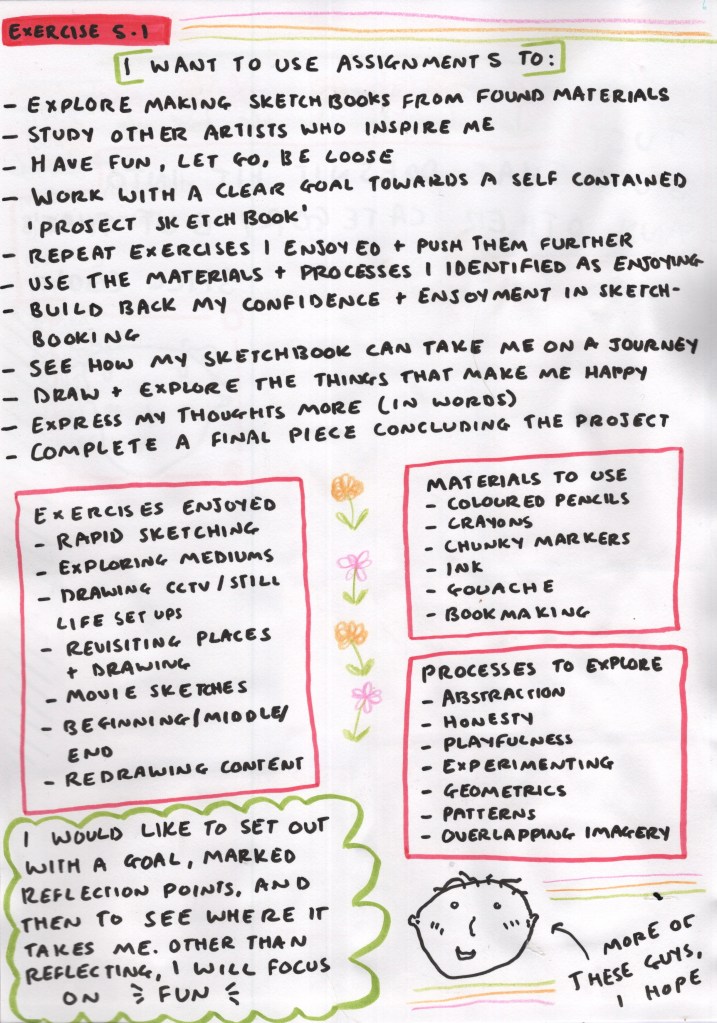 EXERCISE 5.1
I WANT TO USE ASSIGNMENT 5 TO:
- EXPLORE MAKING SKETCHBOOKS FROM FOUND MATERIALS
- STUDY OTHER ARTISTS WHO INSPIRE ME
- HAVE FUN, LET GO, BE LOOSE
- WORK WITH A CLEAR GOAL TOWARDS A SELF CONTAINED
'PROJECT SKETCHBOOK'
- REPEAT EXERCISES I ENJOYED + PUSH THEM FURTHER
- USE THE MATERIALS + PROCESSES I IDENTIFIED AS ENJOYING
- BUILD BACK MY CONFIDENCE + ENJOYMENT IN SKETCH-
BOOKING
- SEE HOW MY SKETCHBOOK CAN TAKE ME ON A JOURNEY
- DRAW + EXPLORE THE THINGS THAT MAKE ME HAPPY
- EXPRESS MY THOUGHTS MORE (IN WORDS)
- COMPLETE A FINAL PIECE CONCLUDING THE PROJECT
EXERCISES ENJOYED
- RAPID SKETCHING
- EXPLORING MEDIUMS
- DRAWING CCTV/STILL
LIFE SET UPS
- REVISITING PLACES
+ DRAWING
- MOVIE SKETCHES
- BEGINNING/MIDDLE/
END
- REDRAWING CONTENT
MATERIALS TO USE
- COLOURED PENCILS
- CRAYONS
- CHUNKY MARKERS
- INK
- GOUACHE
- BOOKMAKING
PROCESSES TO EXPLORE
- ABSTRACTION
- HONESTY
- PLAYFULNESS
- EXPERIMENTING
- GEOMETRICS
- PATTERNS
- OVERLAPPING IMAGERY
I WOULD LIKE TO SET OUT
WITH A GOAL, MARKED
REFLECTION POINTS, AND
THEN TO SEE WHERE IT
TAKES ME. OTHER THAN
REFLECTING, I WILL FOCUS
ON FUN
MORE OF
THESE GUYS,
I HOPE